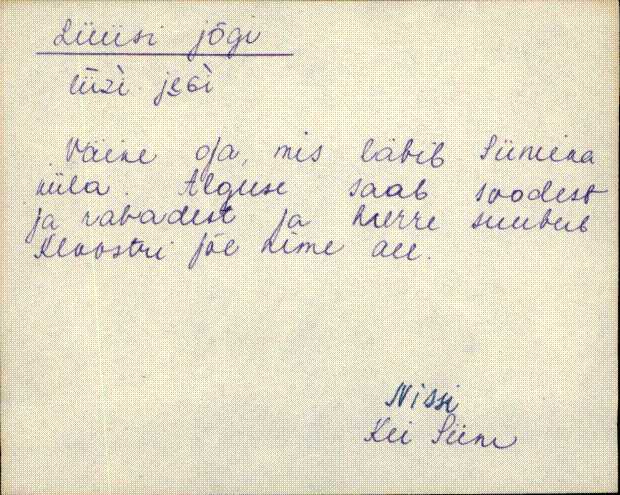 Lüüsi jõgi
lüzì jeGì
Väike oja, mis läbib Siimika
küla. Alguse saab soodest
ja rabadest ja merre suubub
Kloostri jõe nime all.
Nissi
Kei Siim